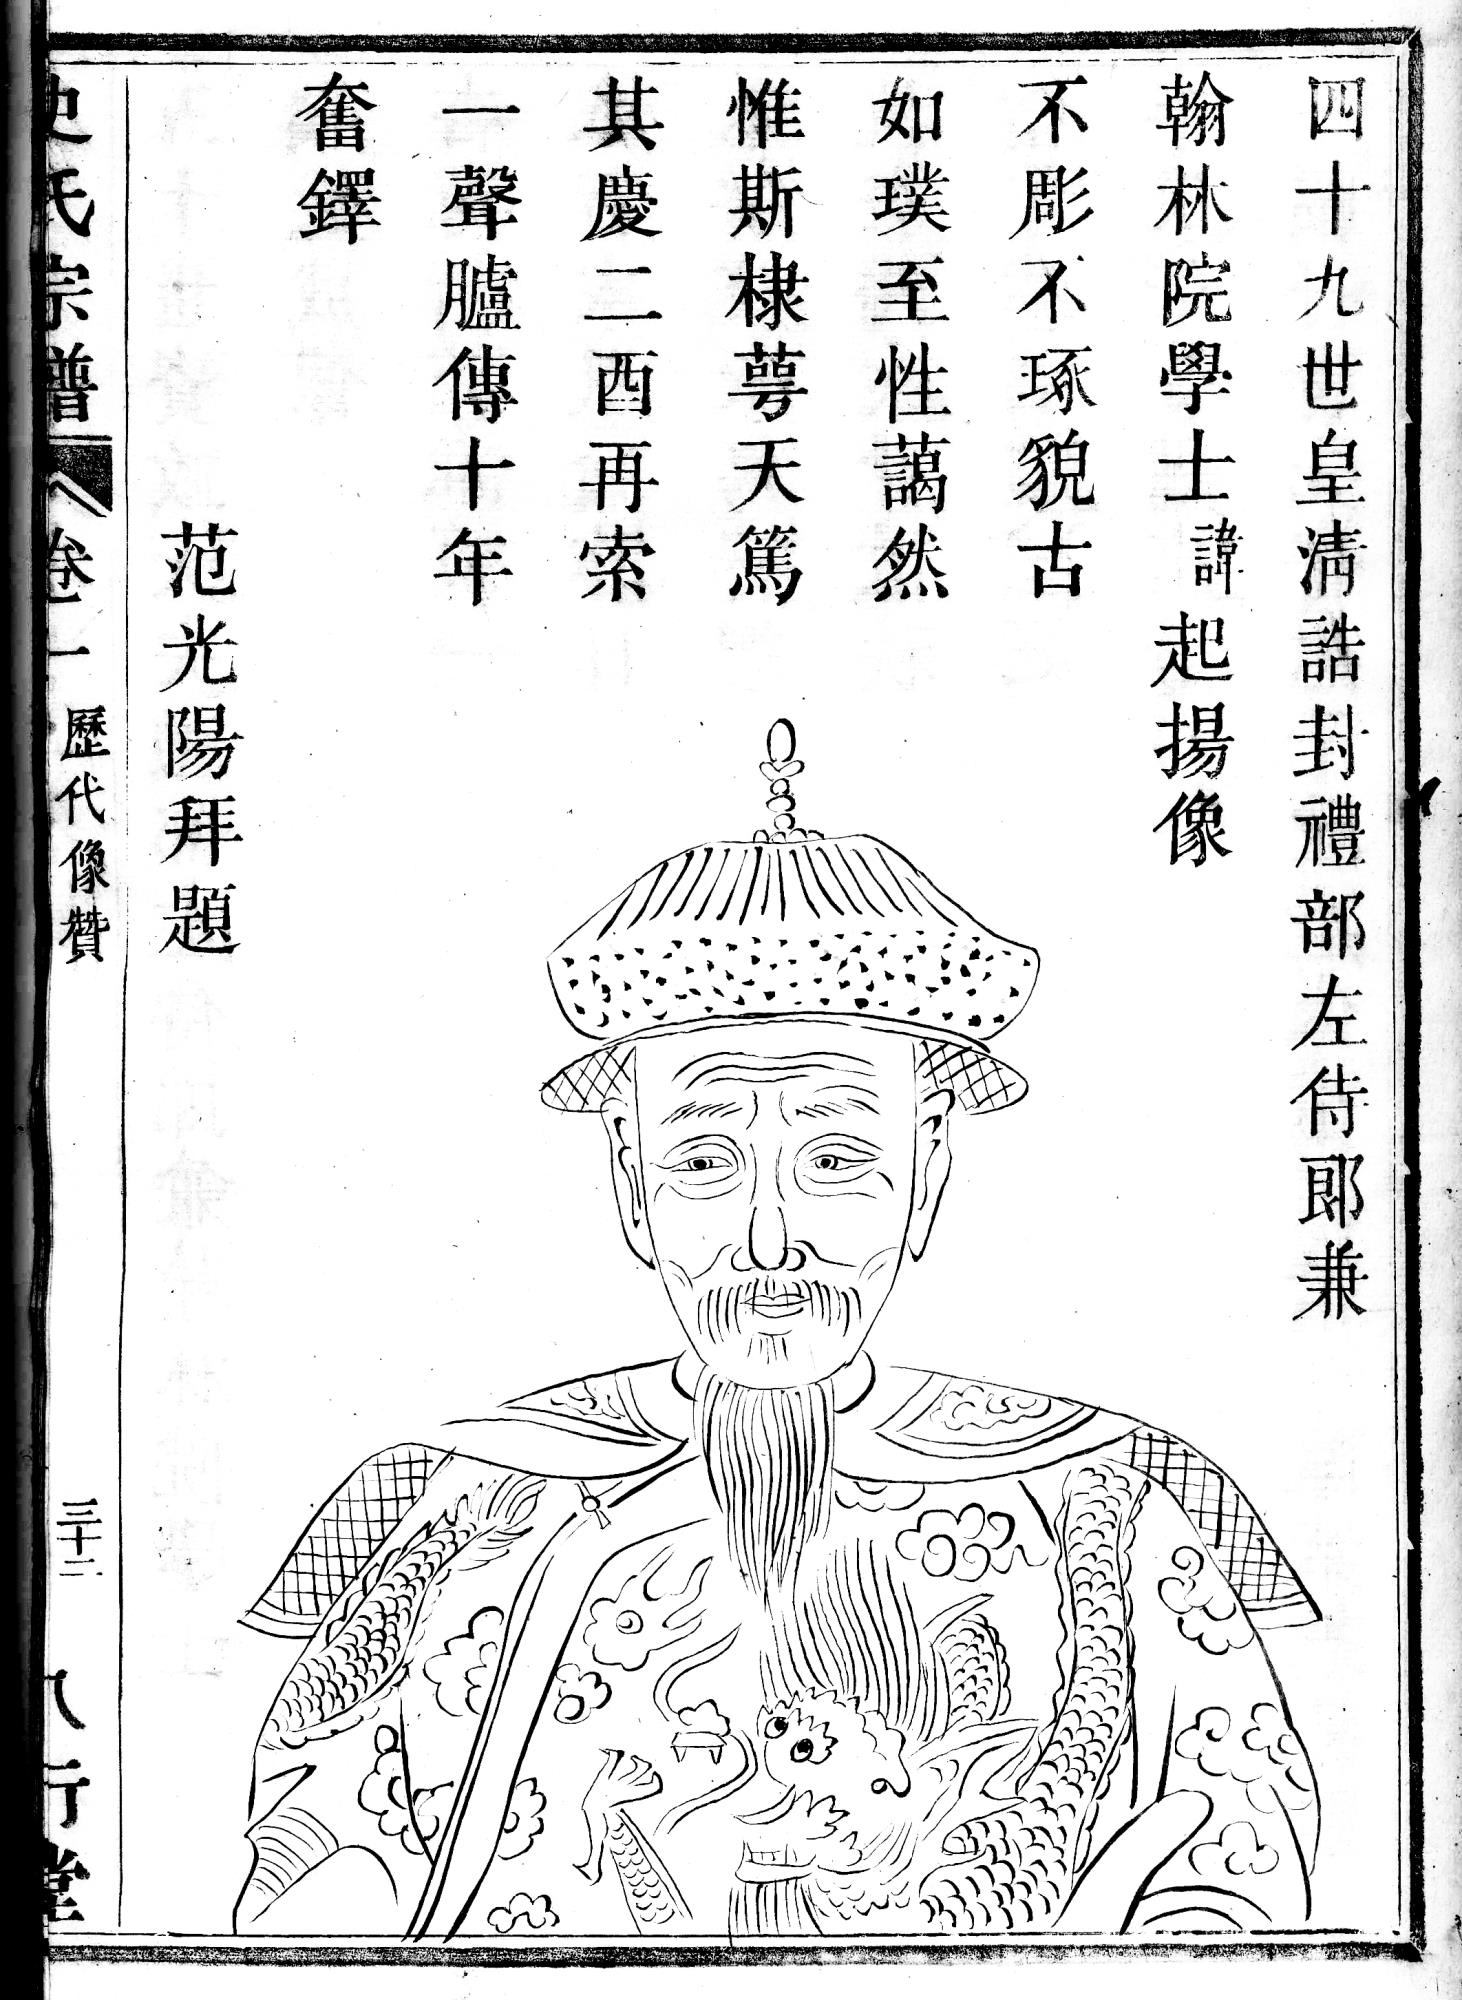 四十九世皇淸誥封禮部左侍郎兼
翰林院學士諱起揚像
不彫不琢貌古
如璞至性藹然
惟斯棣萼天篤
其慶二酉再索
一聲臚傳十年
奮鐸
范光陽拜題
史氏宗譜
卷一
歷代像贊
三十二
八行堂